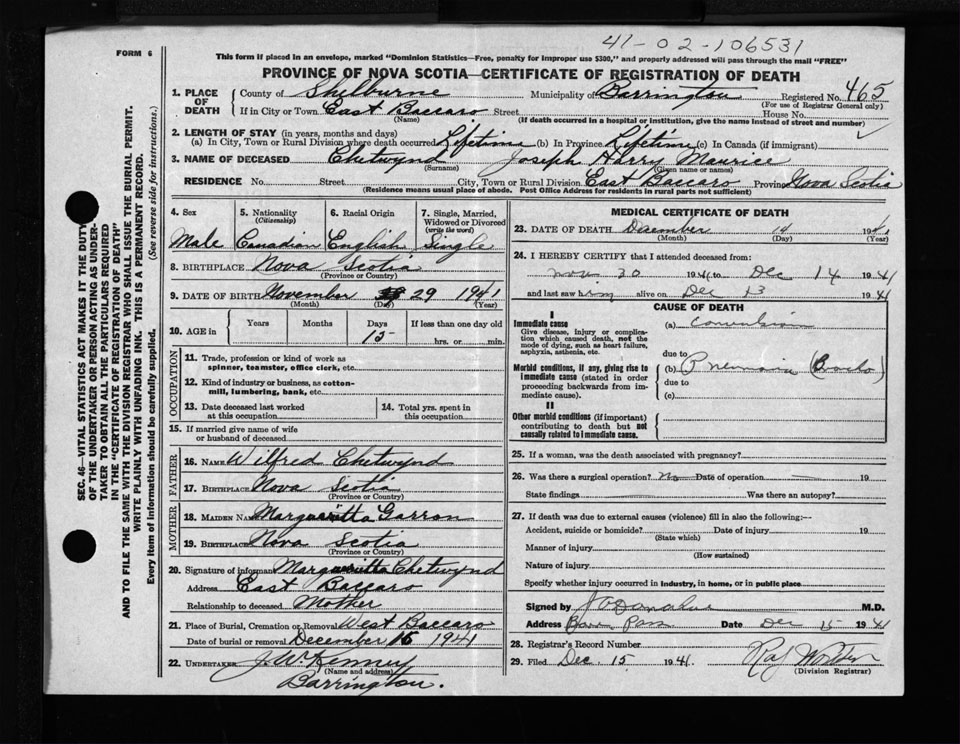 41-02-106531
FORM 6
This form if placed in an envelope, marked "Dominion Statistics—Free, penalty for improper use $300," and properly addressed will pass through the mail "FREE"
PROVINCE OF NOVA SCOTIA—CERTIFICATE OF REGISTRATION OF DEATH
1. PLACE OF DEATH County of Shelburne Municipality of Barrington Registered No. 465
(For use of Registrar General only)
If in City or Town East Baccaro Street House No.
(Name) (If death occurred in a hospital or institution, give the name instead of street and number)
2. LENGTH OF STAY (in years, months and days)
(a) In City, Town or Rural Division where death occurred Lifetime (b) In Province Lifetime (c) In Canada (if immigrant)
3. NAME OF DECEASED Chetwynd Joseph Harry Maurice
(Surname) (Given name or names)
RESIDENCE No. Street City, Town or Rural Division East Baccaro Province Nova Scotia
(Residence means usual place of abode. Post Office Address for residents in rural parts not sufficient)
SEC. 46—VITAL STATISTICS ACT MAKES IT THE DUTY
OF THE UNDERTAKER OR PERSON ACTING AS UNDER-
TAKER TO OBTAIN ALL THE PARTICULARS REQUIRED
IN THE "CERTIFICATE OF REGISTRATION OF DEATH"
AND TO FILE THE SAME WITH THE DIVISION REGISTRAR WHO SHALL ISSUE THE BURIAL PERMIT.
WRITE PLAINLY WITH UNFADING INK. THIS IS A PERMANENT RECORD.
Every item of information should be carefully supplied. (See reverse side for instructions.)
4. Sex 5. Nationality 6. Racial Origin 7. Single, Married,
(Citizenship) Widowed or Divorced
(write the word)
Male Canadian English Single
8. BIRTHPLACE Nova Scotia
(Province or Country)
9. DATE OF BIRTH November 29 1941
(Day) (Year)
10. AGE in Years Months Days If less than one day old
15 hrs. or min.
OCCUPATION
11. Trade, profession or kind of work as
spinner, teamster, office clerk, etc.
12. Kind of industry or business, as cotton-
mill, lumbering, bank, etc.
13. Date deceased last worked
at this occupation
14. Total yrs. spent in
this occupation
15. If married give name of wife
or husband of deceased
FATHER
16. NAME Wilfred Chetwynd
17. BIRTHPLACE Nova Scotia
(Province or Country)
MOTHER
18. MAIDEN NAME Margueritta Garron
19. BIRTHPLACE Nova Scotia
(Province or Country)
20. Signature of informant Margueritta Chetwynd
Address East Baccaro
Relationship to deceased Mother
21. Place of Burial, Cremation or Removal West Baccaro
Date of burial or removal December 16 1941
22. UNDERTAKER J. W. Kenney
(Name and address)
Barrington.
MEDICAL CERTIFICATE OF DEATH
23. DATE OF DEATH December 14 1941
(Month) (Day) (Year)
24. I HEREBY CERTIFY that I attended deceased from:
Nov 30 1941 to Dec 14 1941
and last saw him alive on Dec 13 1941
CAUSE OF DEATH
I
Immediate cause
Give disease, injury or complica-
tion which caused death, not the
mode of dying, such as heart failure,
asphyxia, asthenia, etc.
(a) Convulsion
due to
Morbid conditions, if any, giving rise to
immediate cause (stated in order
proceeding backwards from im-
mediate cause).
(b) Pneumonia (Broncho)
due to
(c)
II
Other morbid conditions (if important)
contributing to death but not
causally related to immediate cause.
25. If a woman, was the death associated with pregnancy?
26. Was there a surgical operation? No Date of operation 19
State findings Was there an autopsy?
27. If death was due to external causes (violence) fill in also the following:—
Accident, suicide or homicide? Date of injury 19
(State which)
Manner of injury
(How sustained)
Nature of injury
Specify whether injury occurred in industry, in home, or in public place
Signed by J O Donahue M.D.
Address Barr. Pass Date Dec 15 1941
28. Registrar's Record Number
29. Filed Dec. 15 1941.
(Division Registrar)